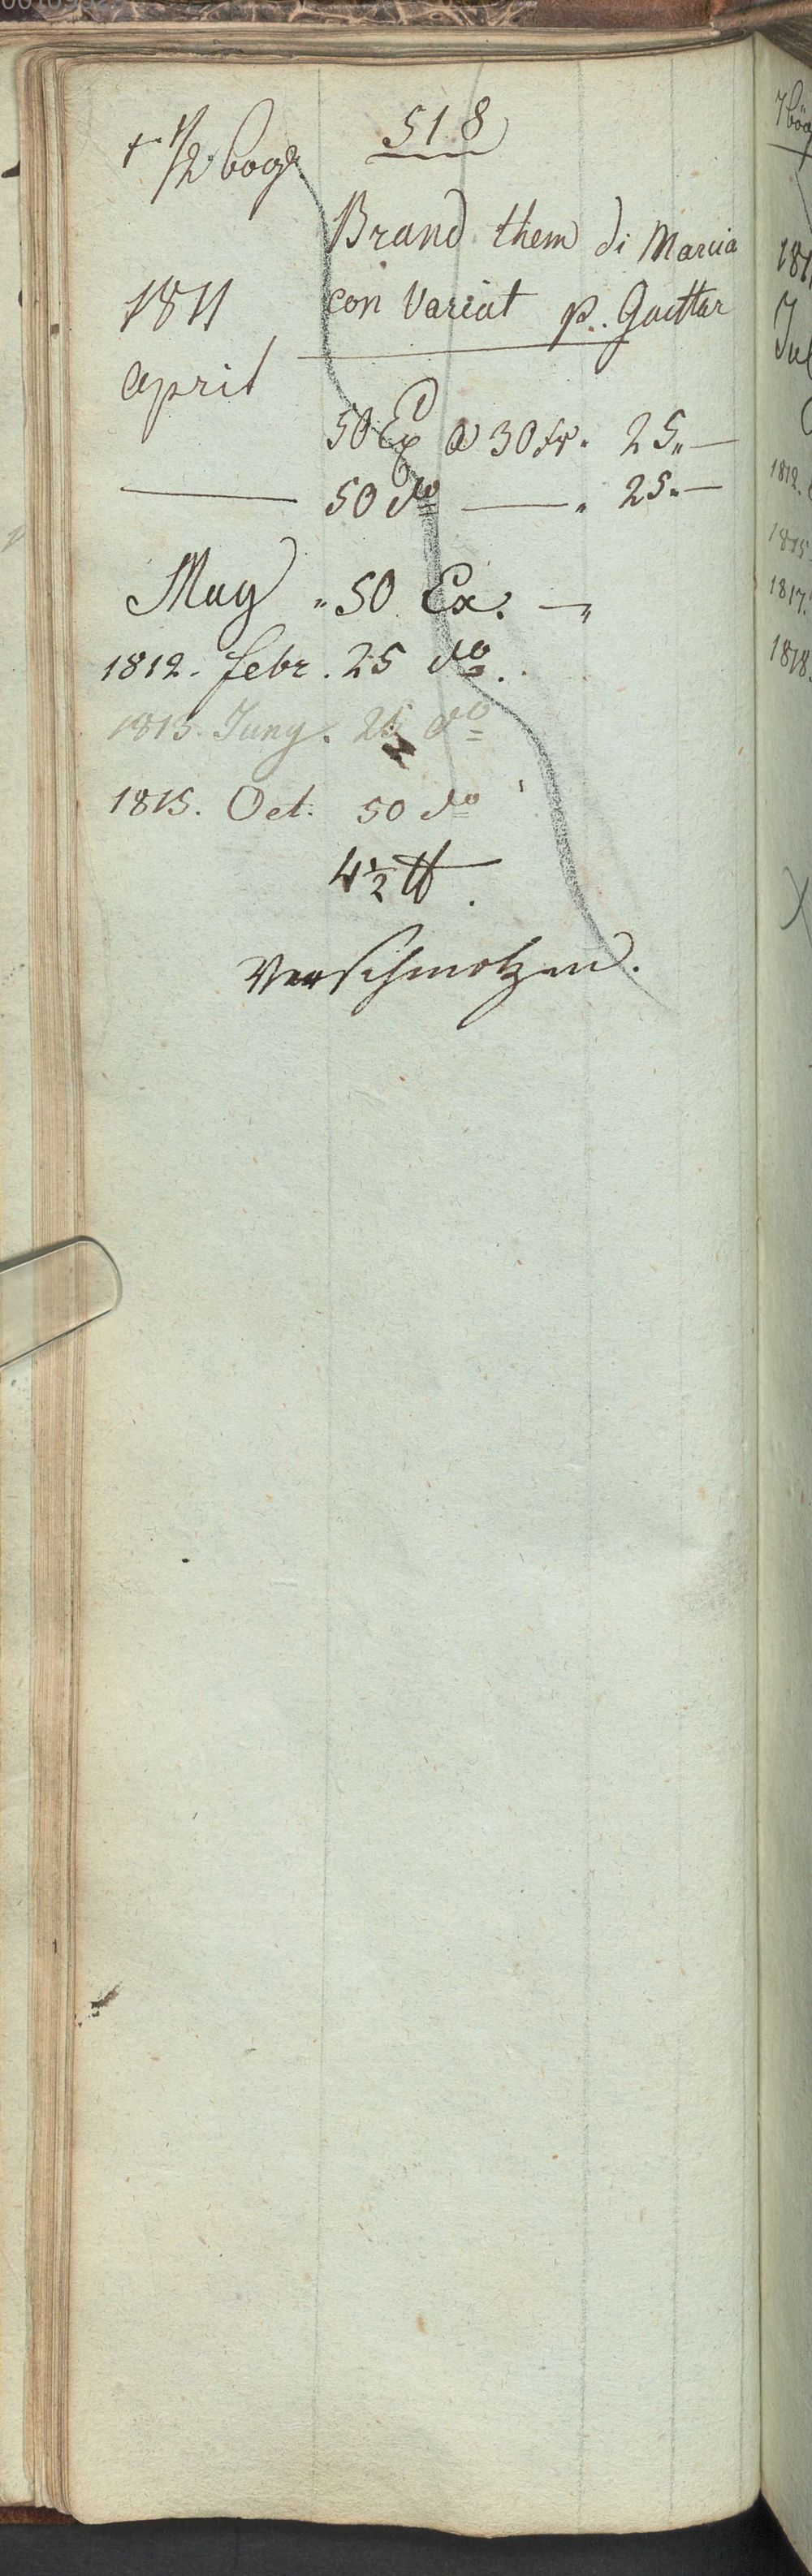 518
+ 1/2 bog.
Brand them di Marcia
1811 con Variat p.. Guittar
April
50 Ex @ 30 Xr. 25.. —
— 50 do — . 25. —
May .. 50 Ex. — ..
1812. febr. 25 do..
1813. Juny. 25 do
1815. Oct. 50 do
4½ ℔.
Verschmolzen.
181
Jul
1812.
1815
1817.
1818.